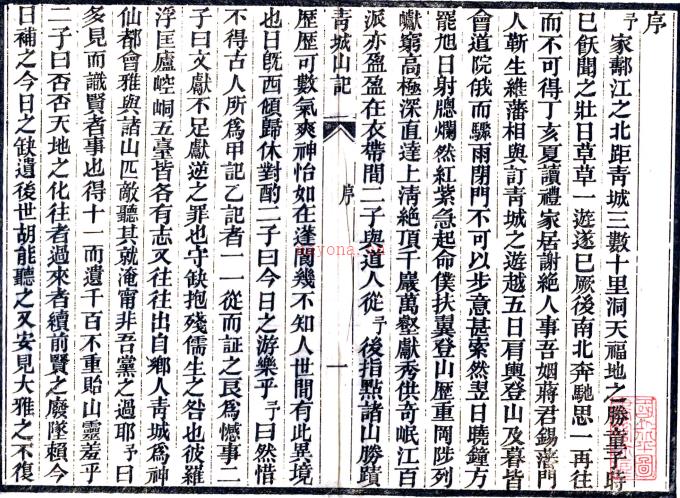 序
予家江之北距青城三數十里洞天福地之勝童子時
已飫聞之壯日草草一遊遂已厥後南北奔馳思一再往
而不可得丁亥夏讀禮家居謝絕人事吾姻蔣君錫藩門
人靳生維藩相與訂青城之遊越五日肩輿登山及暮皆
會道院俄而驟雨閉門不可以步意甚索然翌日曉鐘方
罷旭日射牕爛然紅紫急起命僕扶翼登山歷重岡陟列
巘窮高極深直達上清絕頂千巖萬壑獻秀供奇岷江百
派亦盈盈在衣帶間二子與道人從予後指點諸山勝蹟
青城山記 序 一
歷歷可數氣爽神怡如在蓬閬幾不知人世間有此異境
也日旣西傾歸休對酌二子曰今日之游樂乎予曰然惜
不得古人所爲甲記乙記者一一從而証之良爲憾事二
子曰文獻不足獻逆之罪也守缺抱殘儒生之咎也彼羅
浮匡廬崆峒五臺皆各有志又往往出自鄉人青城爲神
仙都會雅與諸山匹敵聽其就淹甯非吾黨之過耶予曰
多見而識賢者事也得十一而遺千百不重貽山靈羞乎
二子曰否否天地之化往者過來者續前賢之廢墜賴今
日補之今日之缺遺後世胡能聽之又安見大雅之不復